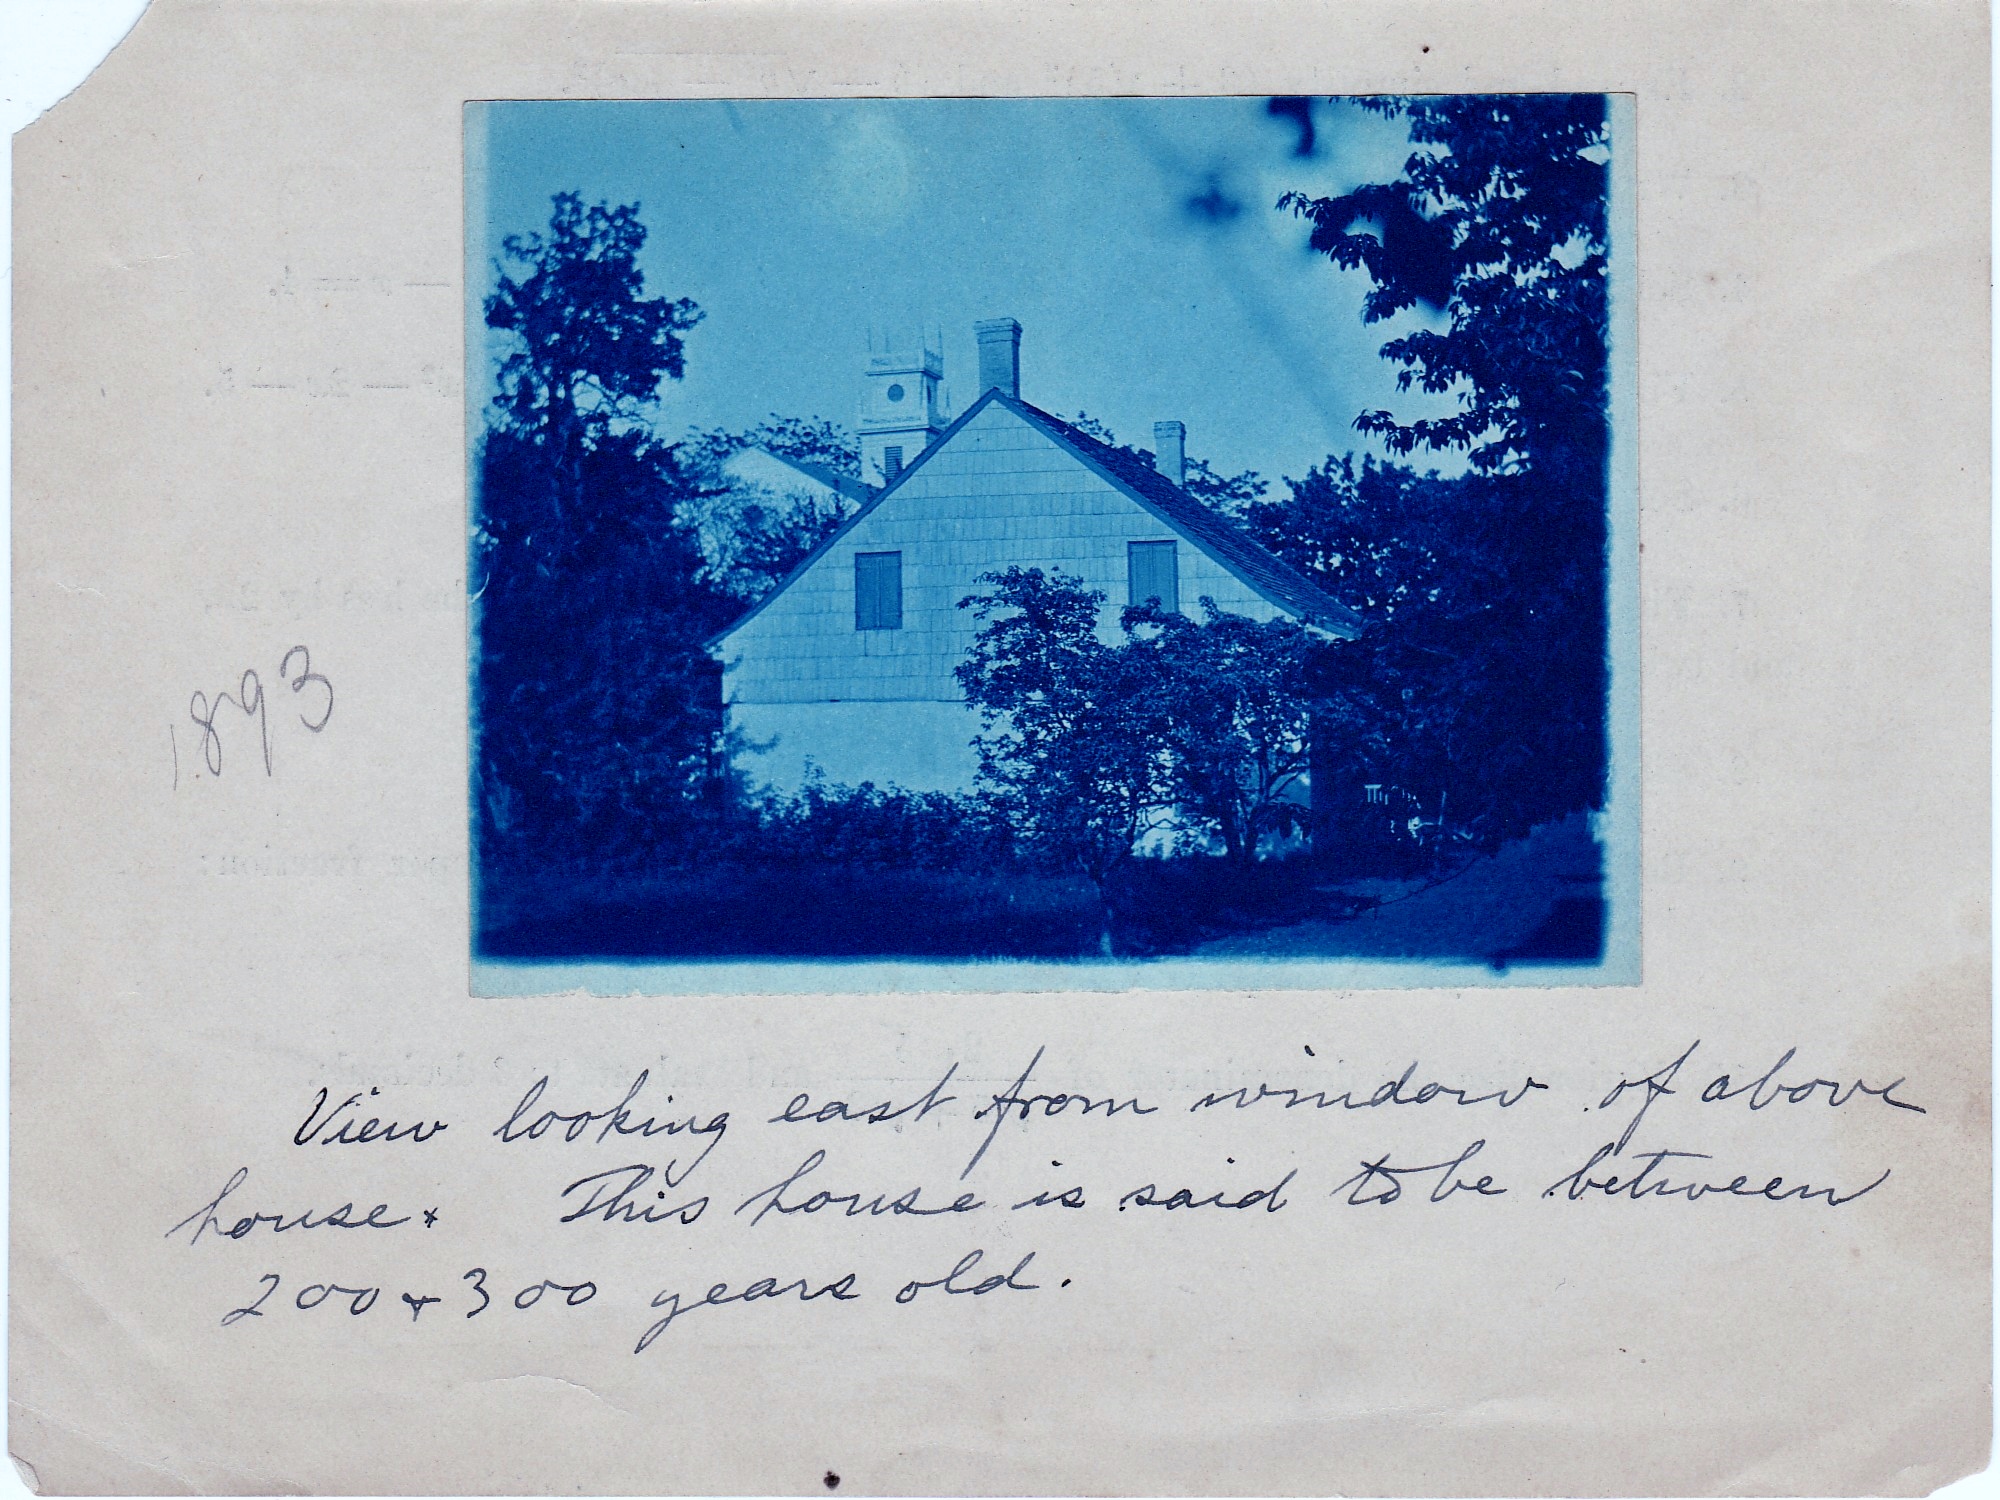 1893
View looking east from window of above
house. This house is said to be between
200 + 300 years old.